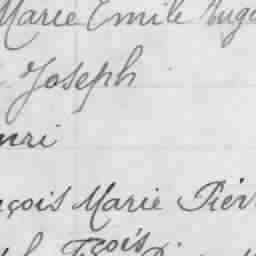 Marie Emile Hug
Joseph
nri
nçois Marie Pier
Fçois